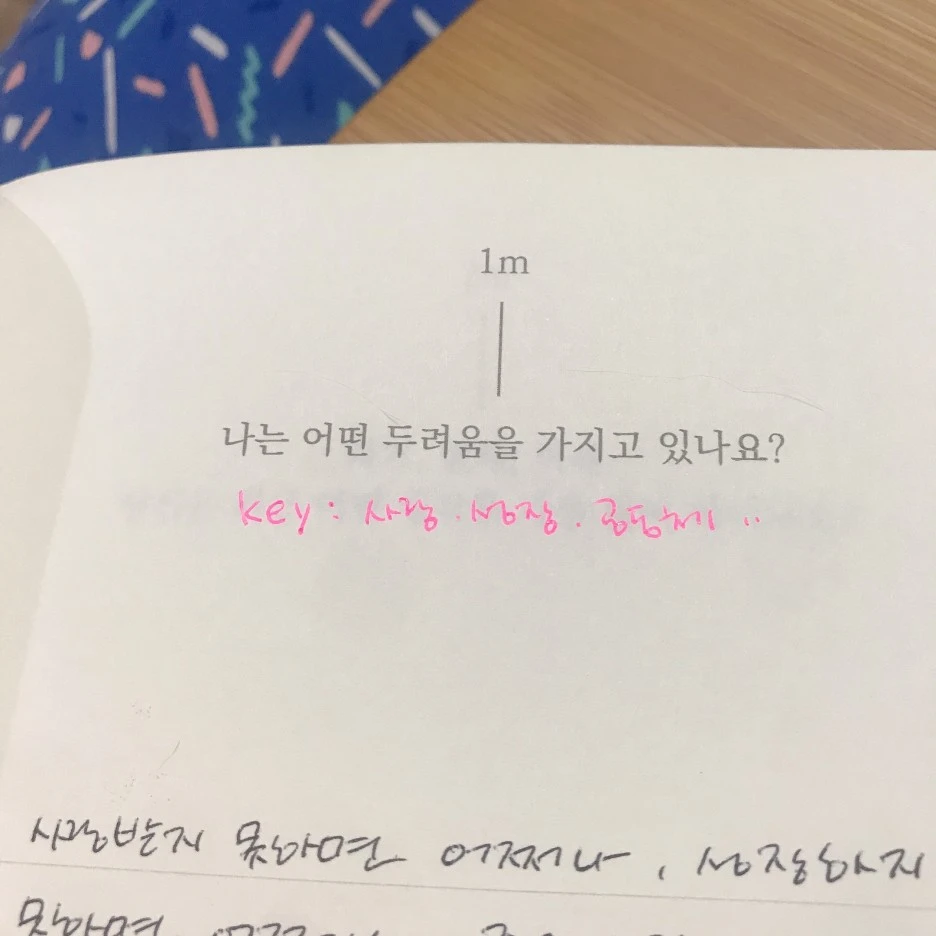 1m
나는 어떤 두려움을 가지고 있나요?
key : 사랑 . 성장 . 공동체 ..
사랑받지 못하면 어쩌나 , 성장하지
못하면